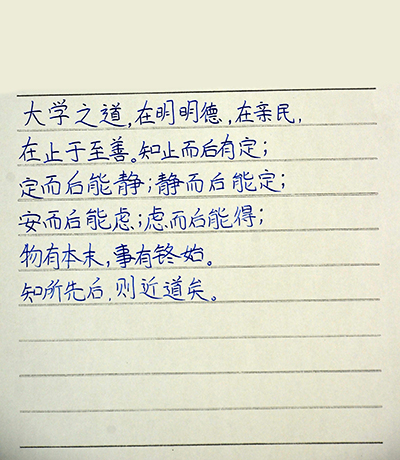 大学之道,在明明德,在亲民,
在止于至善。知止而后有定;
定而后能静;静而后能定;
安而后能虑;虑而后能得;
物有本末,事有终始。
知所先后,则近道矣。